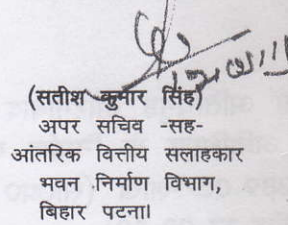 (सतीश कुमार सिंह)
अपर सचिव -सह-
आंतरिक वित्तीय सलाहकार
भवन निर्माण विभाग,
बिहार पटना।